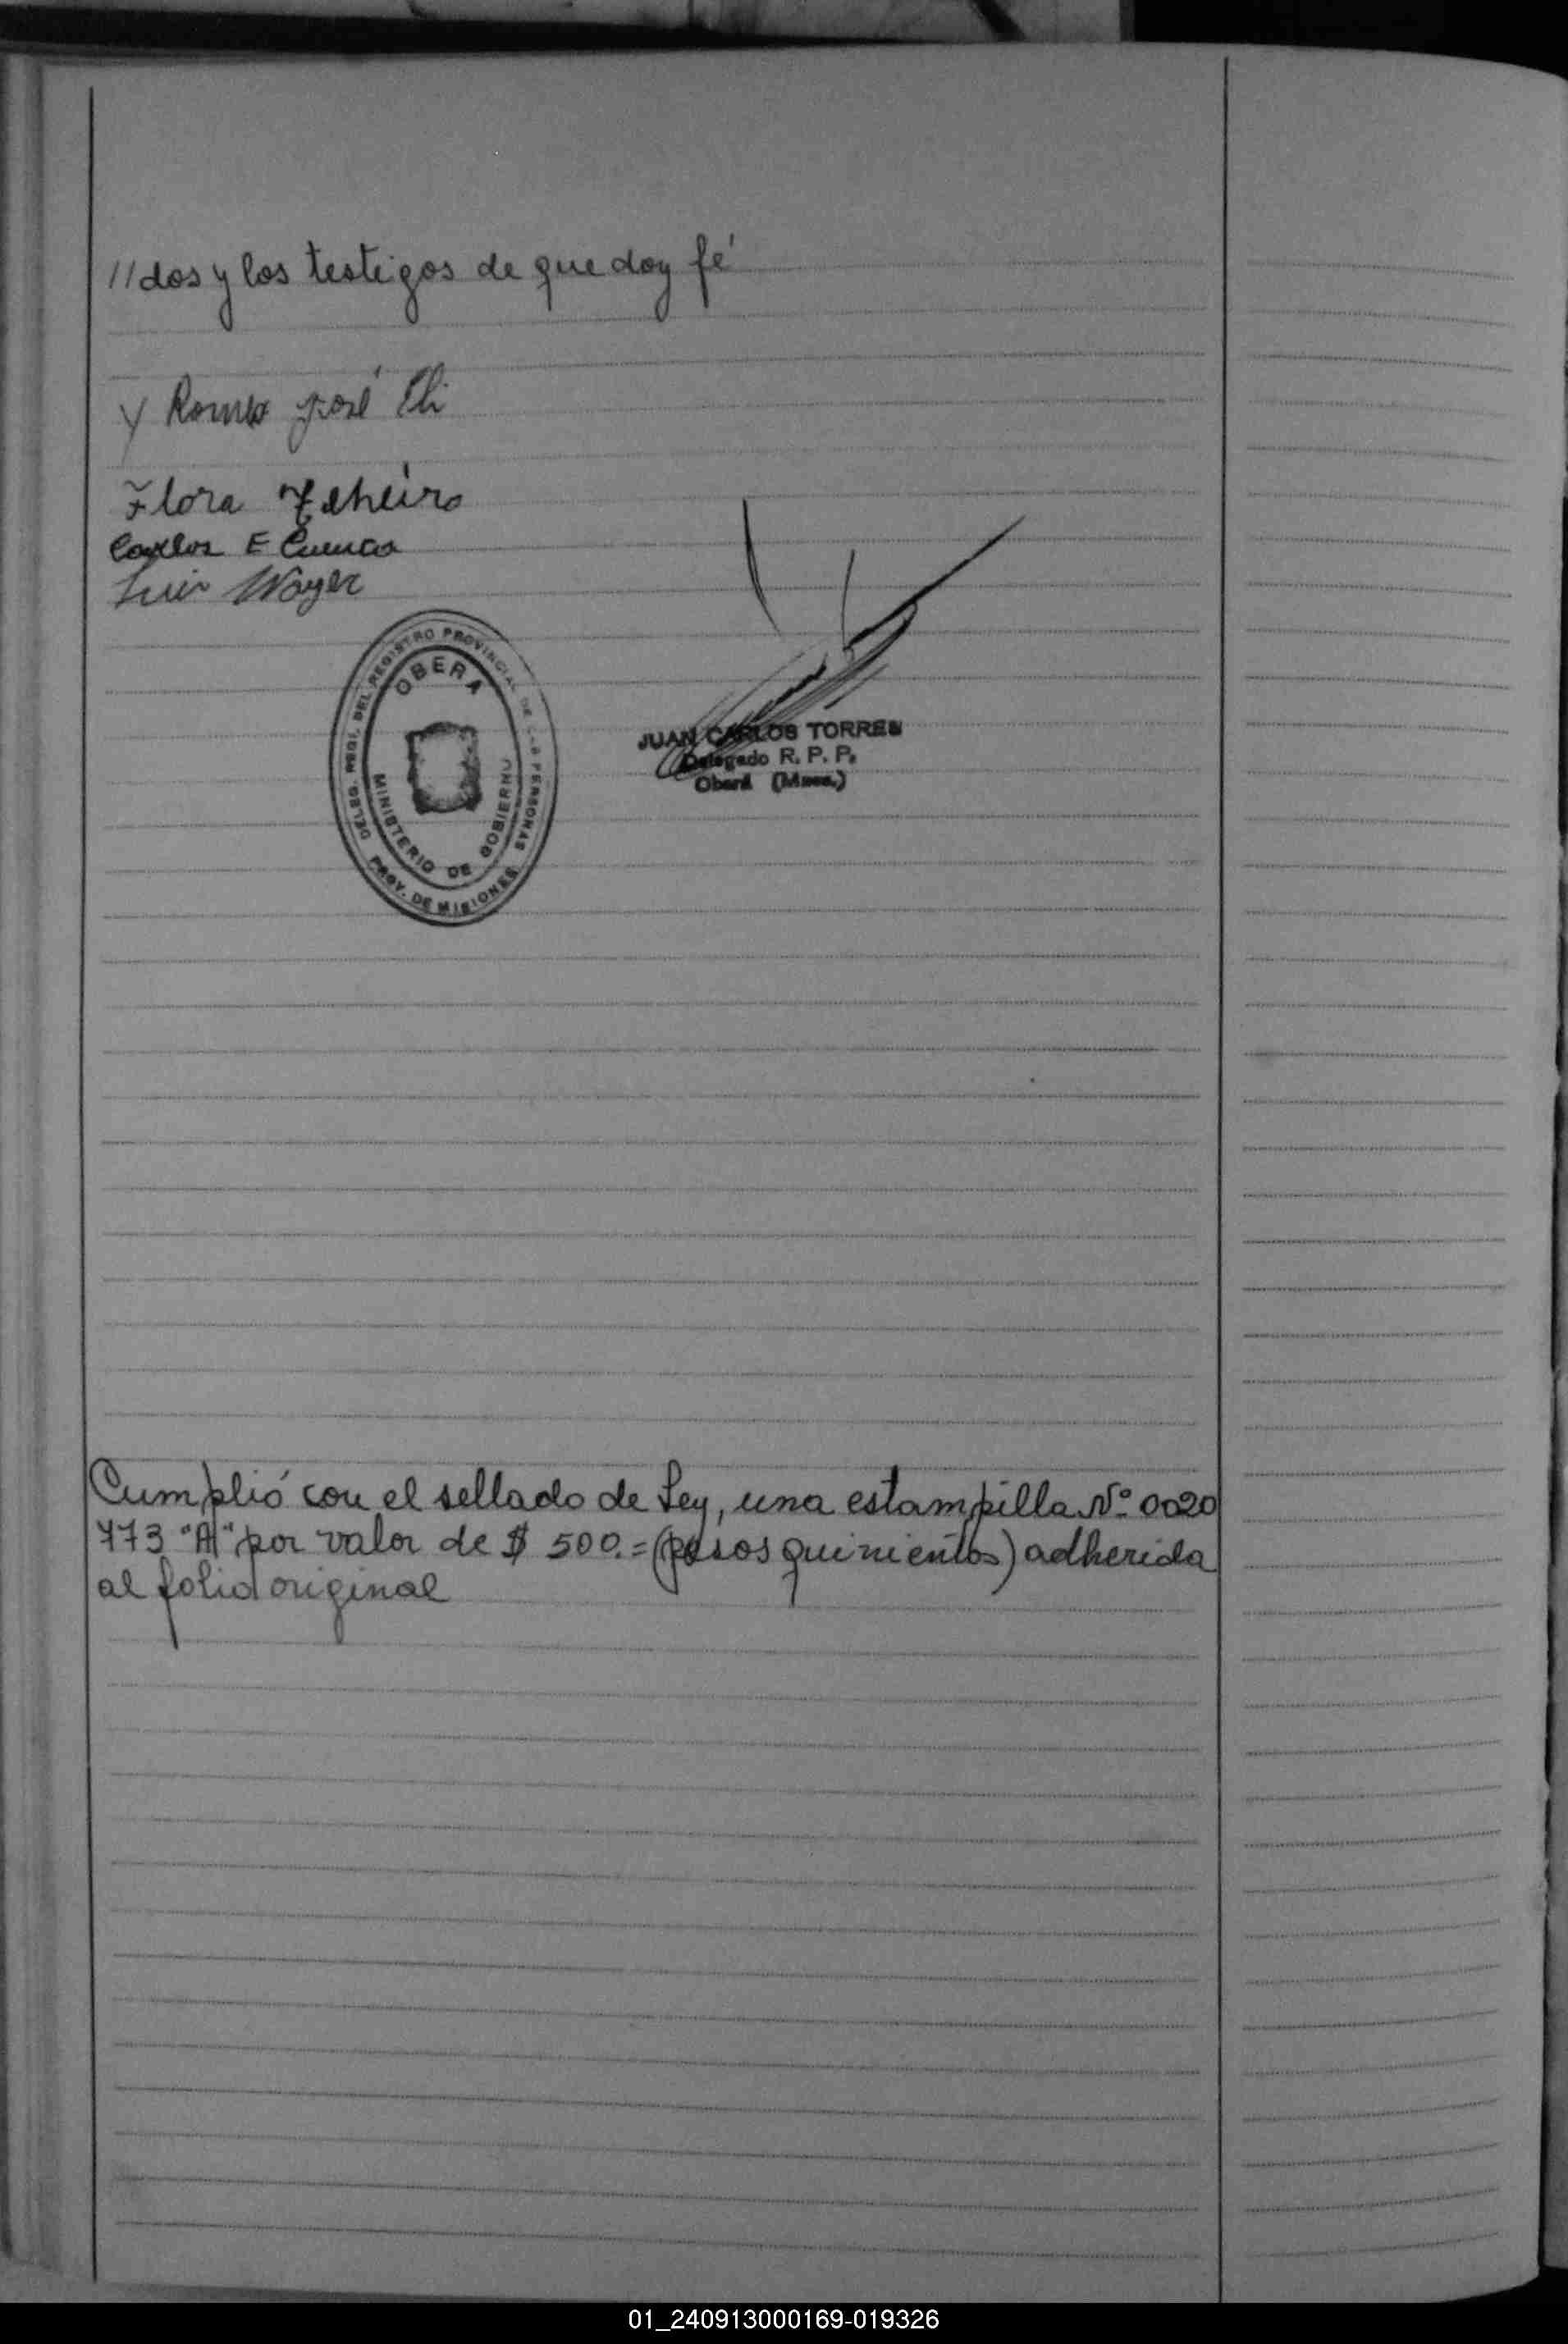 //dos y los testigos de que doy fé
Y José Eli
Flora
Carlos E Cuenca
Luis Wayer
DELEG. REGI. DEL REGISTRO PROVINCIAL DE LAS PERSONAS
OBERA
MINISTERIO DE GOBIERNO
PROV. DE MISIONES
JUAN CARLOS TORRES
Delegado R. P. P.
Oberá (Mnes.)
Cumplió con el sellado de Ley, una estampilla Nº 0020
773 "A" por valor de $ 500.= (pesos quinientos) adherida
al folio original
01_240913000169-019326